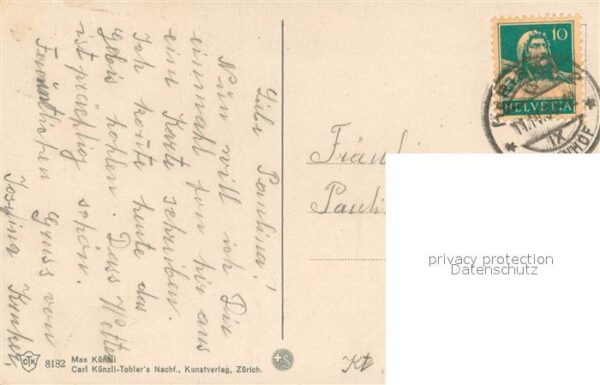 Liebe Paulina!
Nun will ich Dir
einmahl fon hir aus
ein Karte schriben.
Ich konte heute das
Gebis hohlen. Dass Wetter
ist prächtig schön.
Gruss von
Josefina
Fräulein
Pauli
Kt.
10
HELVETIA
IX
privacy protection
Datenschutz
CTK 8182 Max Künzli
Carl Künzli-Tobler's Nachf., Kunstverlag, Zürich.